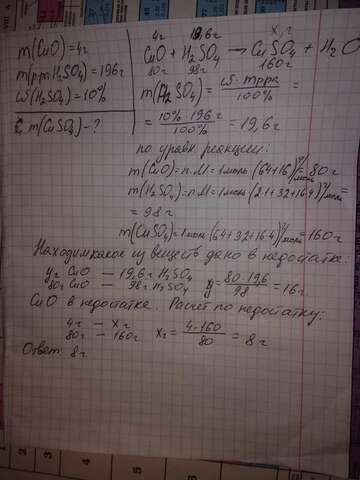 m(CuO)=4г
m(р.р H₂SO₄)=196г
ω(H₂SO₄)=10%
m(CuSO₄)-?
4г 19,6г x, г
CuO + H₂SO₄ → CuSO₄ + H₂O
80г 98г 160г
m(H₂SO₄) = ω·mрра / 100% =
= 10%·196г / 100% = 19,6г
по уравн. реакции:
m(CuO)=n.M=1моль(64+16)г/моль=80г
m(H₂SO₄)=n.M=1моль(2·1+32+16·4)г/моль=
= 98г
m(CuSO₄)=1моль(64+32+16·4)г/моль=160г
Находим какое из веществ дано в недостатке:
уг CuO — 19,6г H₂SO₄
80г CuO — 98г H₂SO₄ y= 80·19,6 / 98 = 16г
CuO в недостатке. Расчет по недостатку:
4г — xг
80г — 160г x₂= 4·160 / 80 = 8г
Ответ: 8г